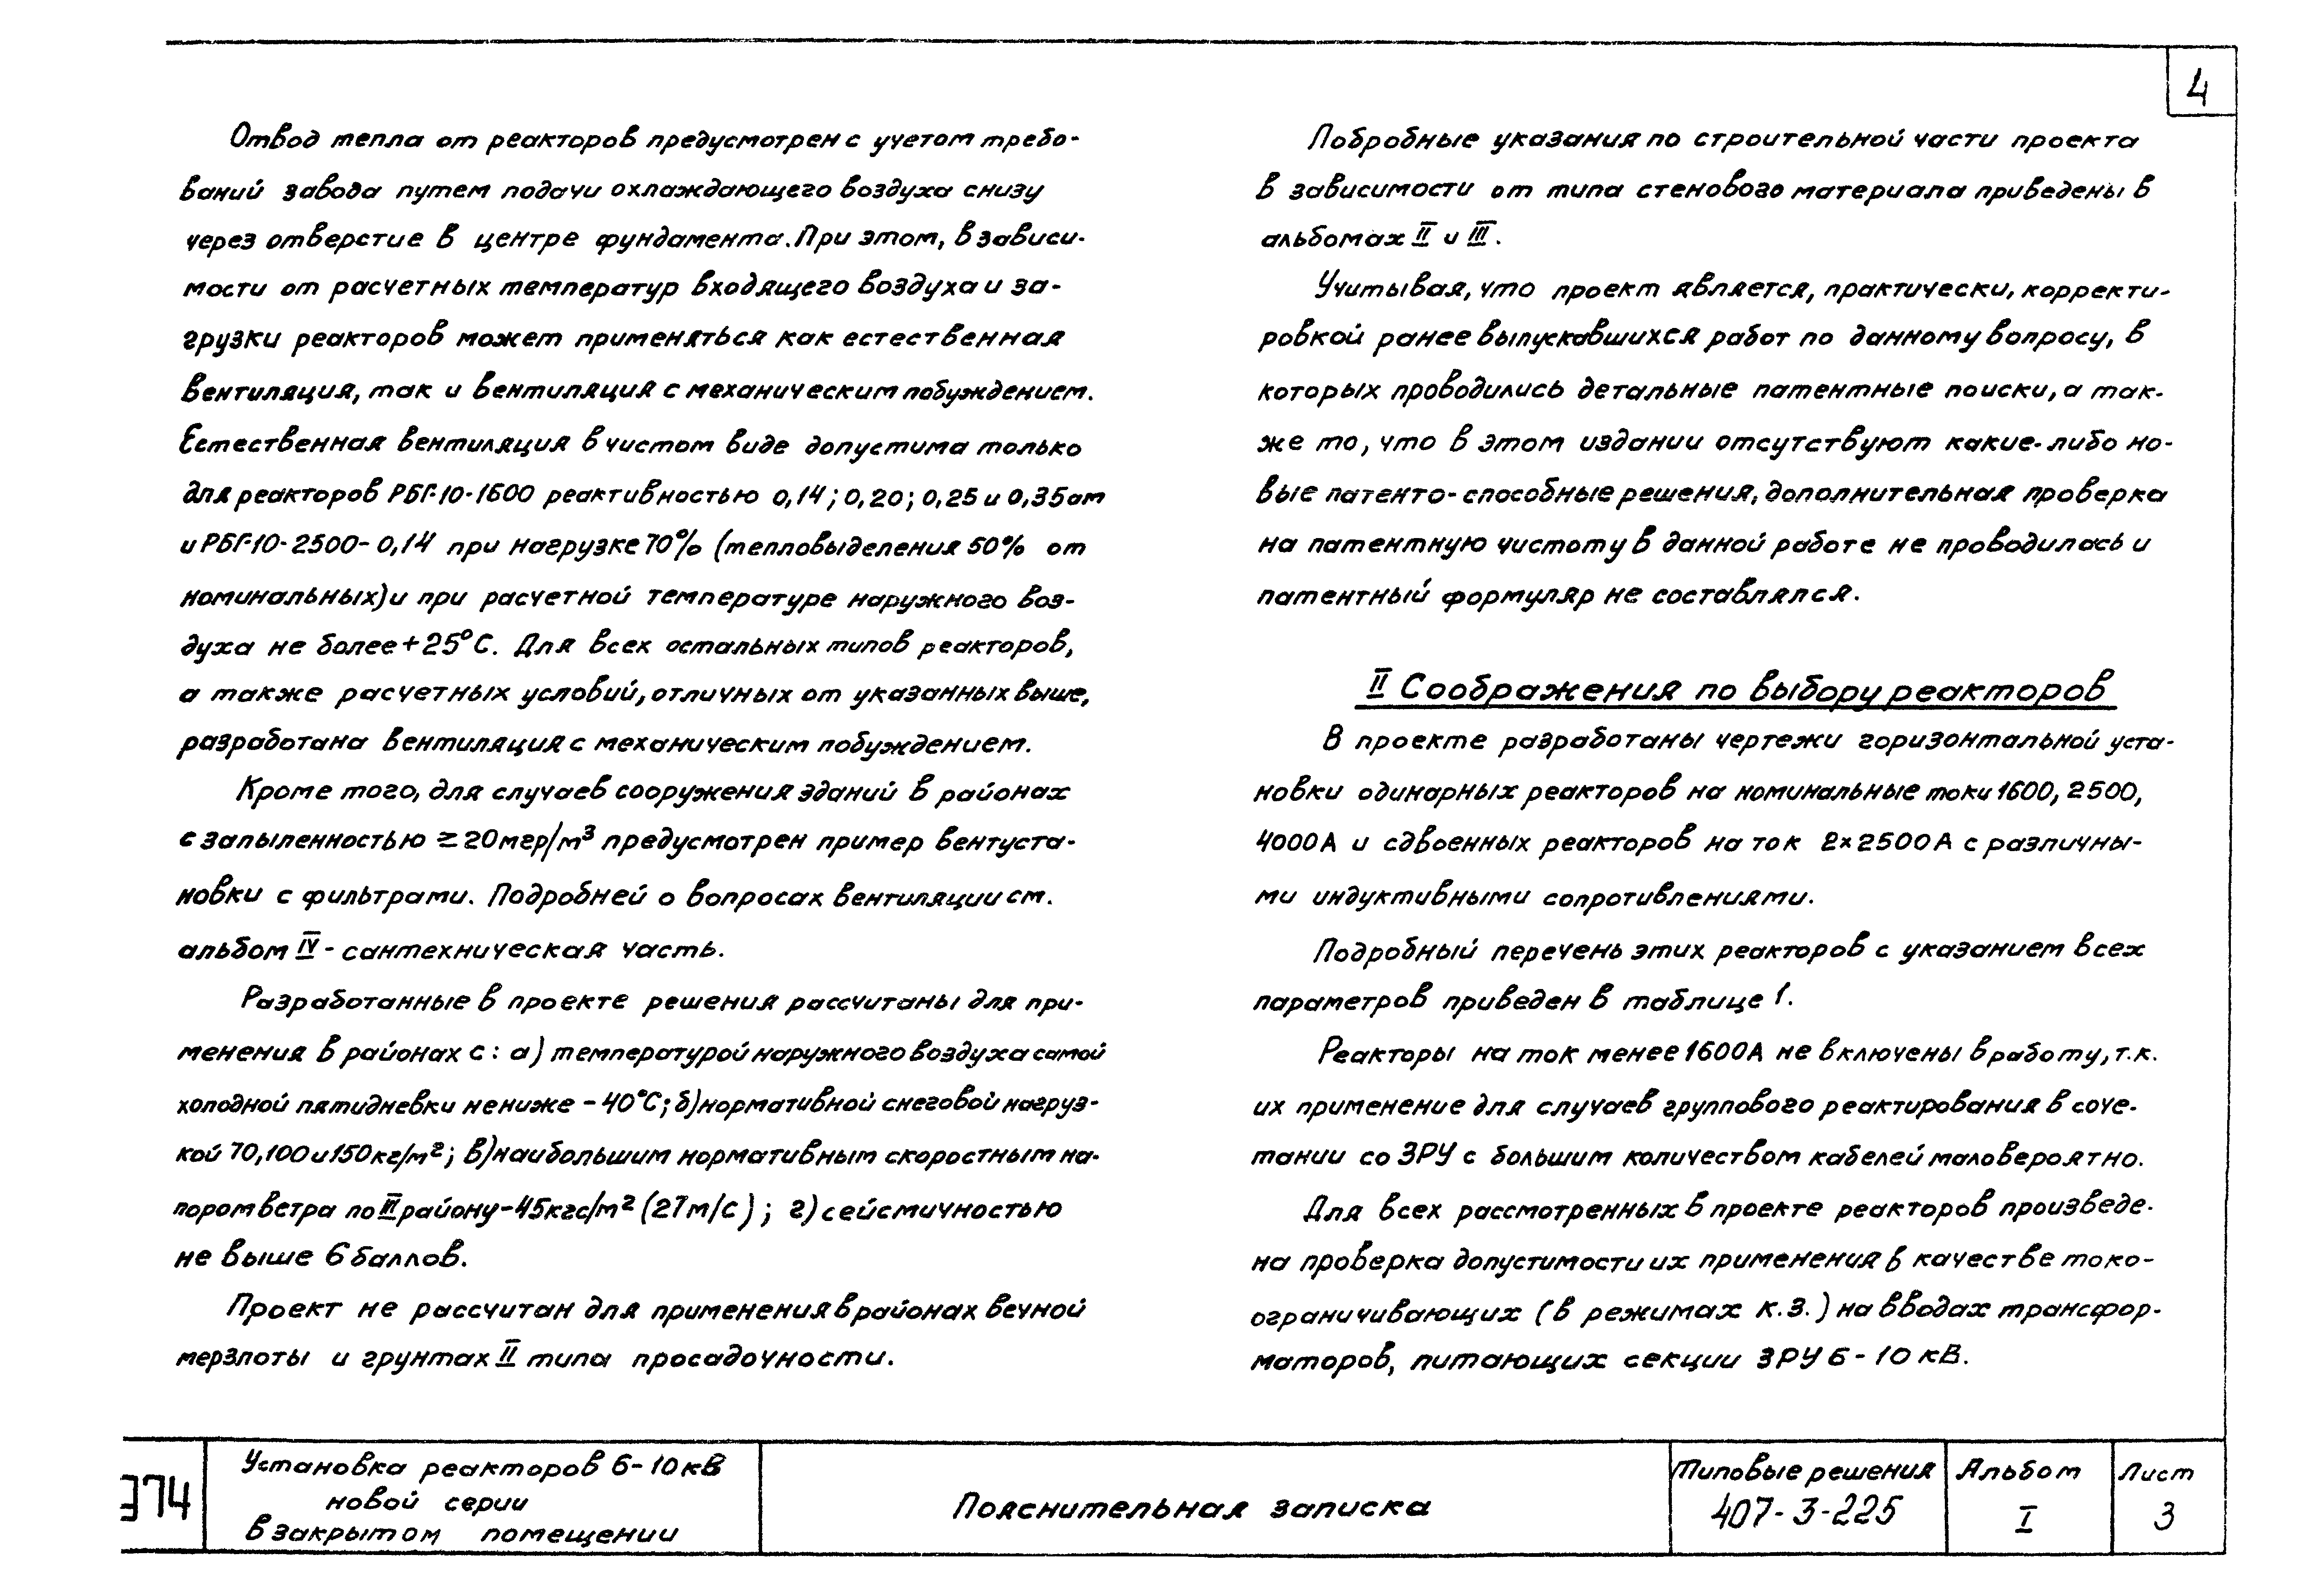 4
Отвод тепла от реакторов предусмотрен с учетом требо-
ваний завода путем подачи охлаждающего воздуха снизу
через отверстие в центре фундамента. При этом, в зависи-
мости от расчетных температур входящего воздуха и за-
грузки реакторов может применяться как естественная
вентиляция, так и вентиляция с механическим побуждением.
Естественная вентиляция в чистом виде допустима только
для реакторов РБГ-10-1600 реактивностью 0,14; 0,20; 0,25 и 0,35 ом
и РБГ-10-2500-0,14 при нагрузке 70% (тепловыделения 50% от
номинальных) и при расчетной температуре наружного воз-
духа не более +25°С. Для всех остальных типов реакторов,
а также расчетных условий, отличных от указанных выше,
разработана вентиляция с механическим побуждением.
Кроме того, для случаев сооружения зданий в районах
с запыленностью ≥ 20 мгр/м³ предусмотрен пример вентуста-
новки с фильтрами. Подробней о вопросах вентиляции см.
альбом IV - сантехническая часть.
Разработанные в проекте решения рассчитаны для при-
менения в районах с: а) температурой наружного воздуха самой
холодной пятидневки не ниже -40°С; б) нормативной снеговой нагруз-
кой 70, 100 и 150 кг/м²; в) наибольшим нормативным скоростным на-
пором ветра по III району - 45 кгс/м² (27 м/с); г) сейсмичностью
не выше 6 баллов.
Проект не рассчитан для применения в районах вечной
мерзлоты и грунтах II типа просадочности.
Побробные указания по строительной части проекта
в зависимости от типа стенового материала приведены в
альбомах II и III.
Учитывая, что проект является, практически, корректи-
ровкой ранее выпускавшихся работ по данному вопросу, в
которых проводились детальные патентные поиски, а так-
же то, что в этом издании отсутствуют какие-либо но-
вые патенто-способные решения, дополнительная проверка
на патентную чистоту в данной работе не проводилась и
патентный формуляр не составлялся.
II Соображения по выбору реакторов
В проекте разработаны чертежи горизонтальной уста-
новки одинарных реакторов на номинальные токи 1600, 2500,
4000А и сдвоенных реакторов на ток 2×2500А с различны-
ми индуктивными сопротивлениями.
Подробный перечень этих реакторов с указанием всех
параметров приведен в таблице 1.
Реакторы на ток менее 1600А не включены в работу, т.к.
их применение для случаев группового реактирования в соче-
тании со ЗРУ с большим количеством кабелей маловероятно.
Для всех рассмотренных в проекте реакторов произведе-
на проверка допустимости их применения в качестве токо-
ограничивающих (в режимах к.з.) на вводах трансфор-
маторов, питающих секции ЗРУ 6-10 кВ.
374
Установка реакторов 6-10 кВ
новой серии
в закрытом помещении
Пояснительная записка
Типовые решения
407-3-225
Альбом
I
Лист
3